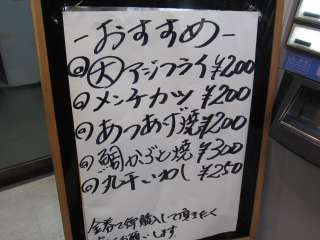 -おすすめ-
◎大アジフライ ¥200
◎メンチカツ ¥200
◎あつあげ焼 ¥200
◎鯛かぶと焼 ¥300
◎丸干いわし ¥250
食券で御購入して頂きたく
お願いします